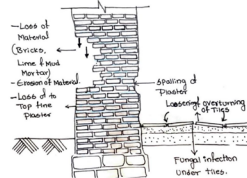 - Loss of
Material
(Bricks,
Lime & Mud
Mortar)
- Erosion of Material.
- Loss of to
Top fine
Plaster
Spalling of
Plaster
Loosening overturning
of Tiles
Fungal infection
Under tiles.